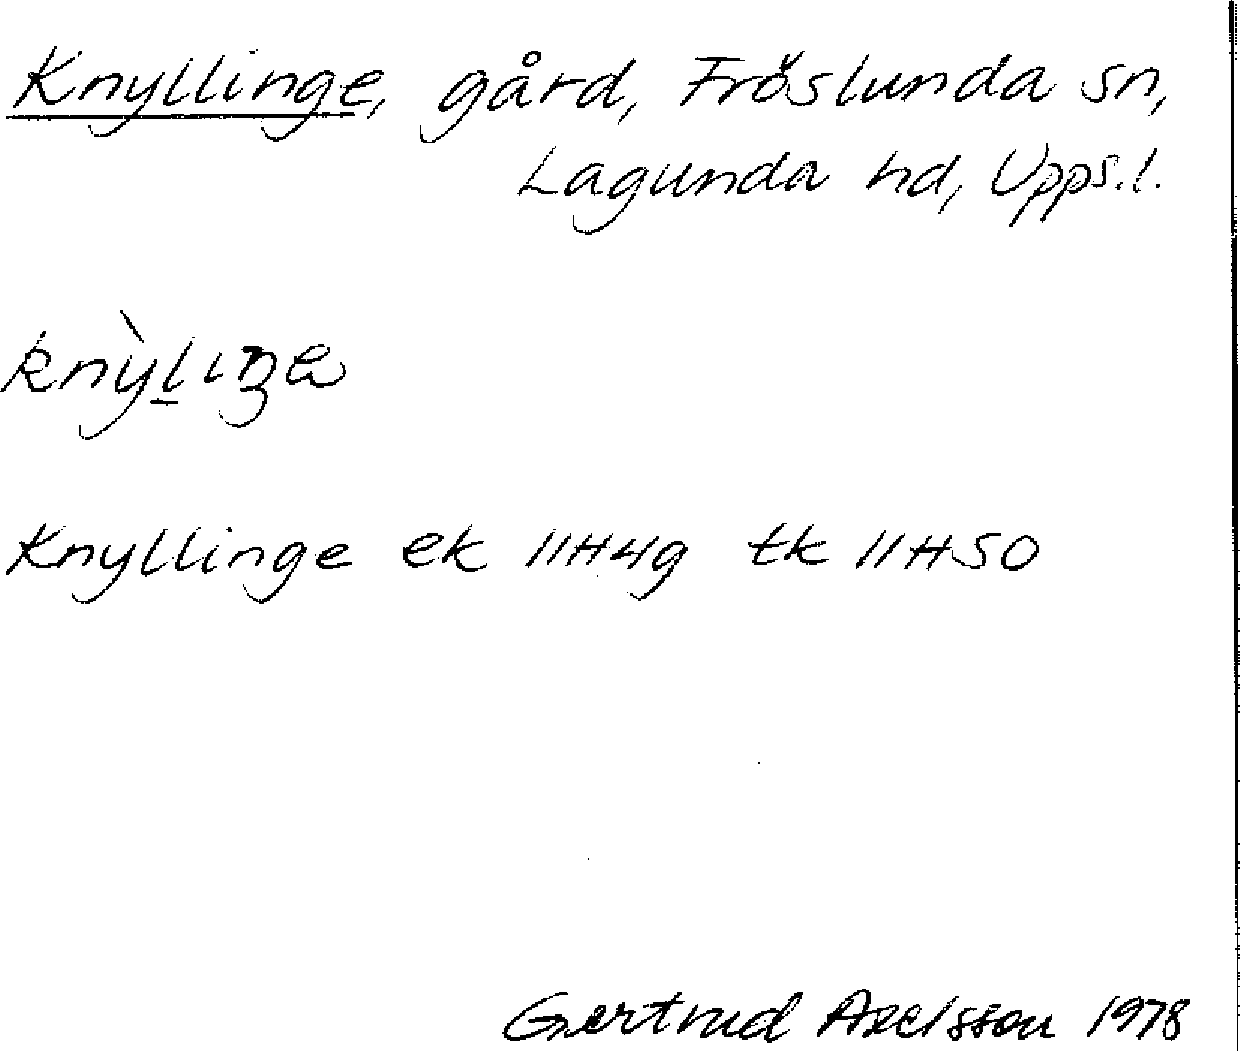 Knyllinge, gård, Fröslunda sn,
Lagunda hd, Upps.l.
Knyllinge ek 11H4g tk 11H50
Gertrud Axelsson 1978